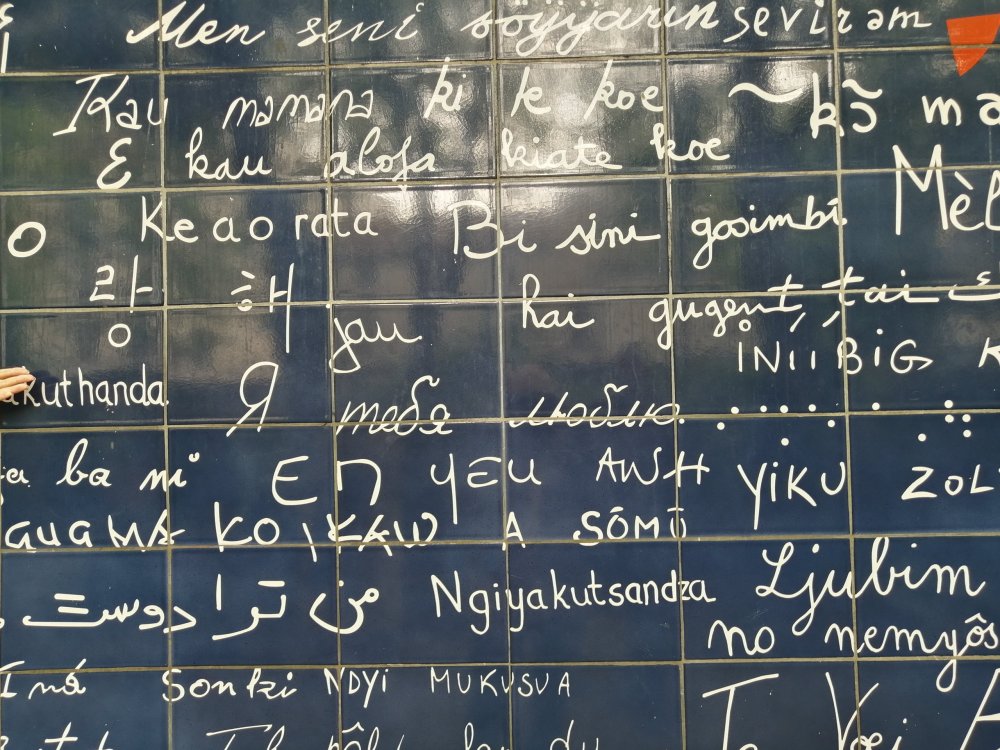 Men seni söyÿarin sevirəm
Kau mamana ki te koe ~ kɔ̃ ma
ε kau alofa kiate koe
o Ke a o rata Bi sini gooimbi Mèl
랑 해 jau hai gugent tai
iNii BiG K
kuthanda Я тебя люблю.
ba ni En YEU AWH YiKU ZOL
GUGMA KO IKAW A SŌMŌ
من ترا دوست Ngiyakutsandza Ljubim
no nemyôs
Iná Sonki NDYi MUKUSUA
Te Voei